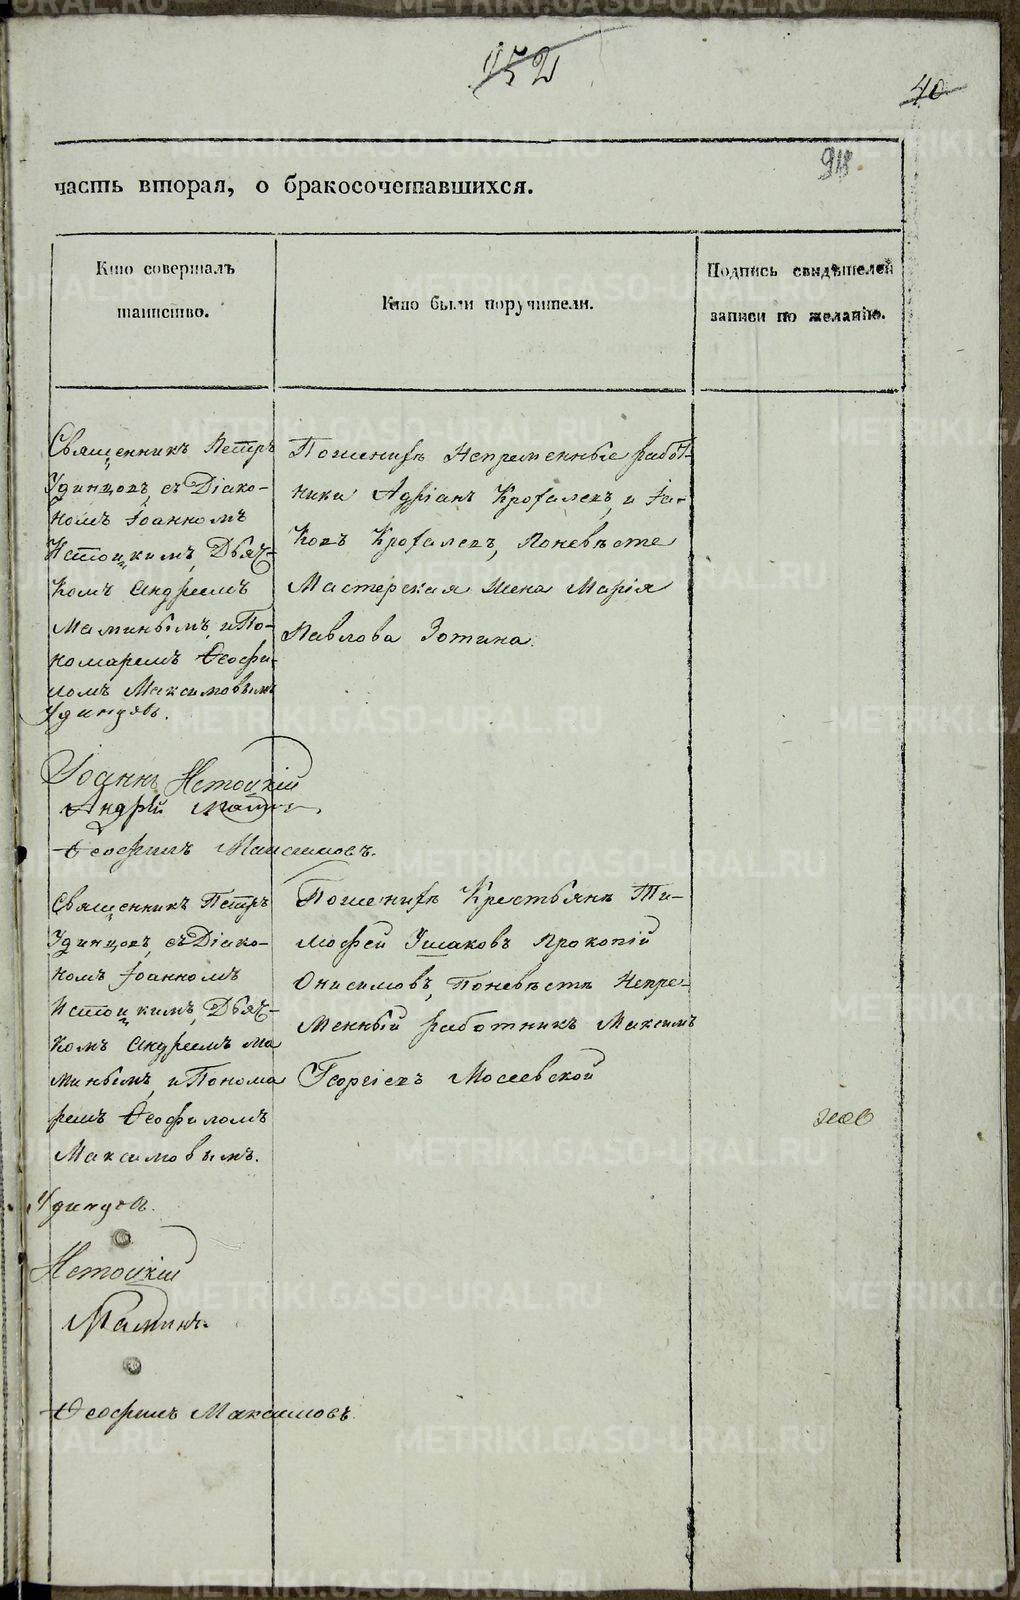 152
40
918
часть вторая, о бракосочетавшихся.
Кто совершалъ
таинство.
Кто были поручители.
Подпись свидѣтелей
записи по желанію.
Священникъ Петръ
Удинцовъ, съ Діако-
номъ Іоанномъ
Истоцкимъ, Дьяч-
комъ Андреемъ
Маминымъ, и По-
номаремъ Ѳеофи-
ломъ Максимовымъ
Удинцовъ.
Іоаннъ Истоцкій
Андрей Маминъ
Ѳеофилъ Максимовъ.
Поженихѣ Непременные работ-
ники Адріанъ Крохалевъ, и Іа-
ковъ Крохалевъ, Поневѣсте
Мастерская Жена Марія
Павлова Зотина.
Священникъ Петръ
Удинцовъ, съ Діако-
номъ Іоанномъ
Истоцкимъ, Дьяч-
комъ Андреемъ Ма
минымъ, и Понома
ремъ Ѳеофиломъ
Максимовымъ.
Удинцовъ.
Истоцкій
Маминъ.
Ѳеофилъ Максимовъ
Поженихѣ Крестьянѣ Ти-
мофей Ушаковъ Прокопій
Онисимовъ, Поневѣстѣ Непре-
менный работникъ Максимъ
Георгіевъ Мосеевской
METRIKI.GASO-URAL.RU